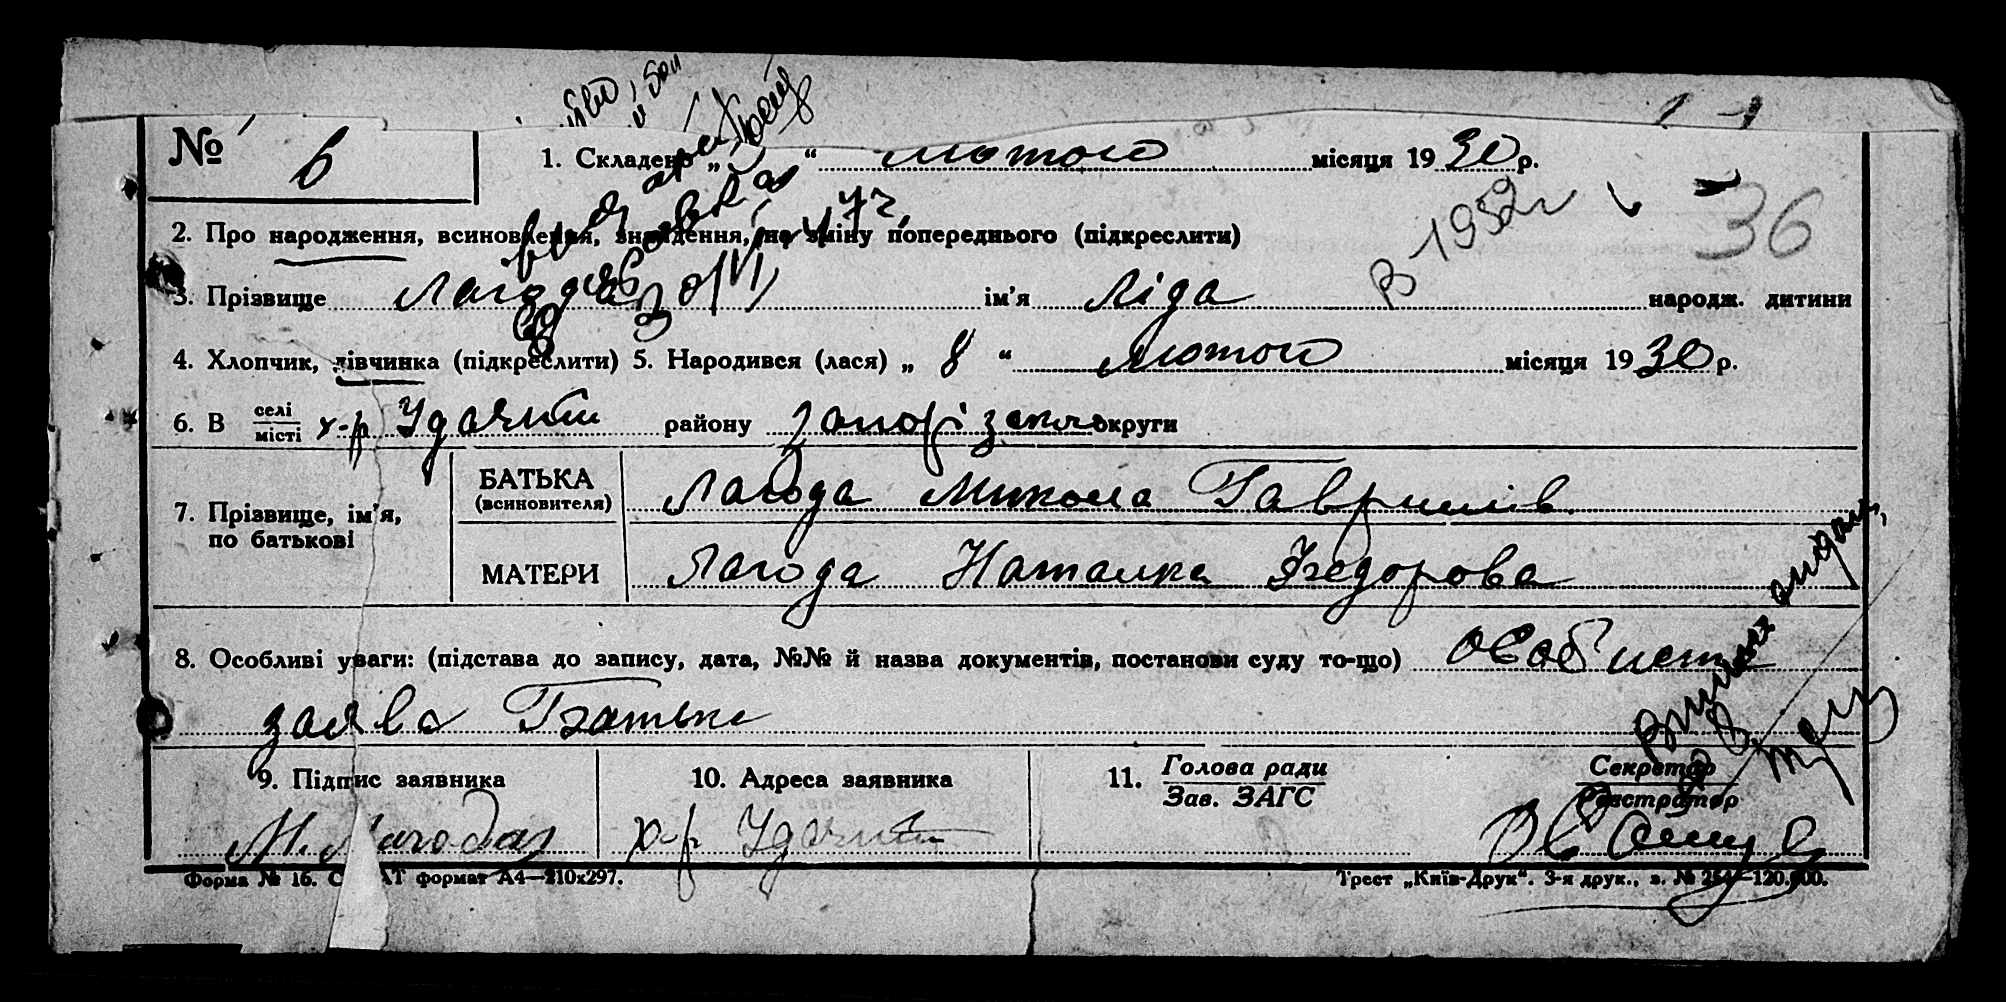 № 6
1. Складено „ “ лютого місяця 1930 р.
36
В-1952г
2. Про народження, всиновлення, знайдення, на зміну попереднього (підкреслити)
3. Прізвище Лагода ім'я Ліда народж. дитини
4. Хлопчик, дівчинка (підкреслити) 5. Народився (лася) „ 8 “ лютого місяця 1930 р.
6. В селі місті х-р Удачний району Запорізької округи
7. Прізвище, ім'я, по батькові
БАТЬКА (всиновителя) Лагода Микола Гаврилів
МАТЕРИ Лагода Наталка Федорова
8. Особливі уваги: (підстава до запису, дата, №№ й назва документів, постанови суду то-що) особиста
заява Батька
9. Підпис заявника
М. Лагода
10. Адреса заявника
х-р Удачний
11. Голова ради
Зав. ЗАГС
Секретар
Реєстратор
Форма № 16. формат А4—210х297.
Трест „Київ-Друк“. 3-я друк., з. № 254—120.000.